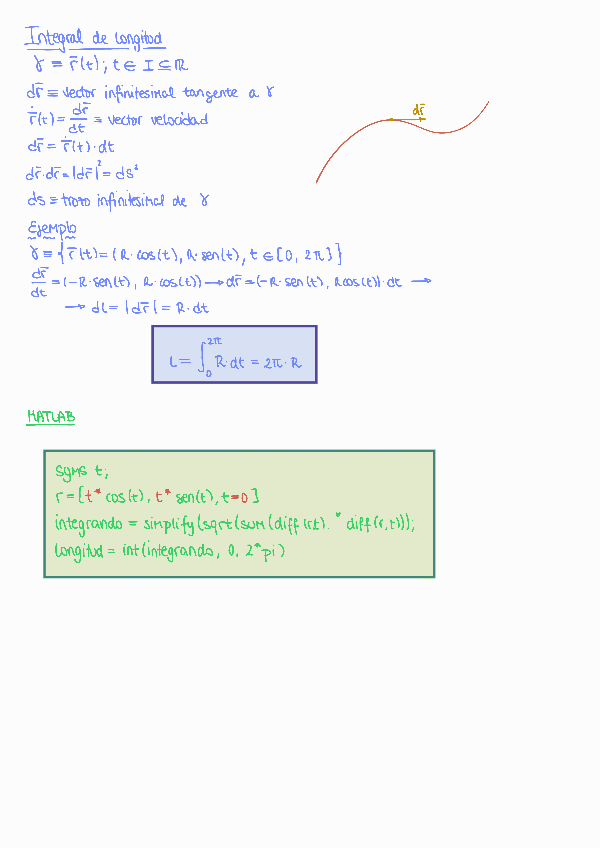 Integral de longitud
γ ≡ r̄(t); t ∈ I ⊆ ℝ
dr̄ ≡ vector infinitesimal tangente a γ
ṙ̄(t) = dr̄/dt ≡ vector velocidad
dr̄
dr̄ = ṙ̄(t)·dt
dr̄·dr̄ = |dr̄|² = ds²
ds ≡ trozo infinitesimal de γ
Ejemplo
γ ≡ {r̄(t) = (R·cos(t), R·sen(t), t ∈ [0, 2π]}
dr̄/dt = (-R·sen(t), R·cos(t)) → dr̄ = (-R·sen(t), Rcos(t))·dt →
→ dL = |dr̄| = R·dt
L = ∫₀^2π R·dt = 2π·R
MATLAB
syms t;
r = [t* cos(t), t* sen(t), t=0]
integrando = simplify(sqrt(sum(diff(r,t).* diff(r,t)));
longitud = int(integrando, 0, 2*pi)